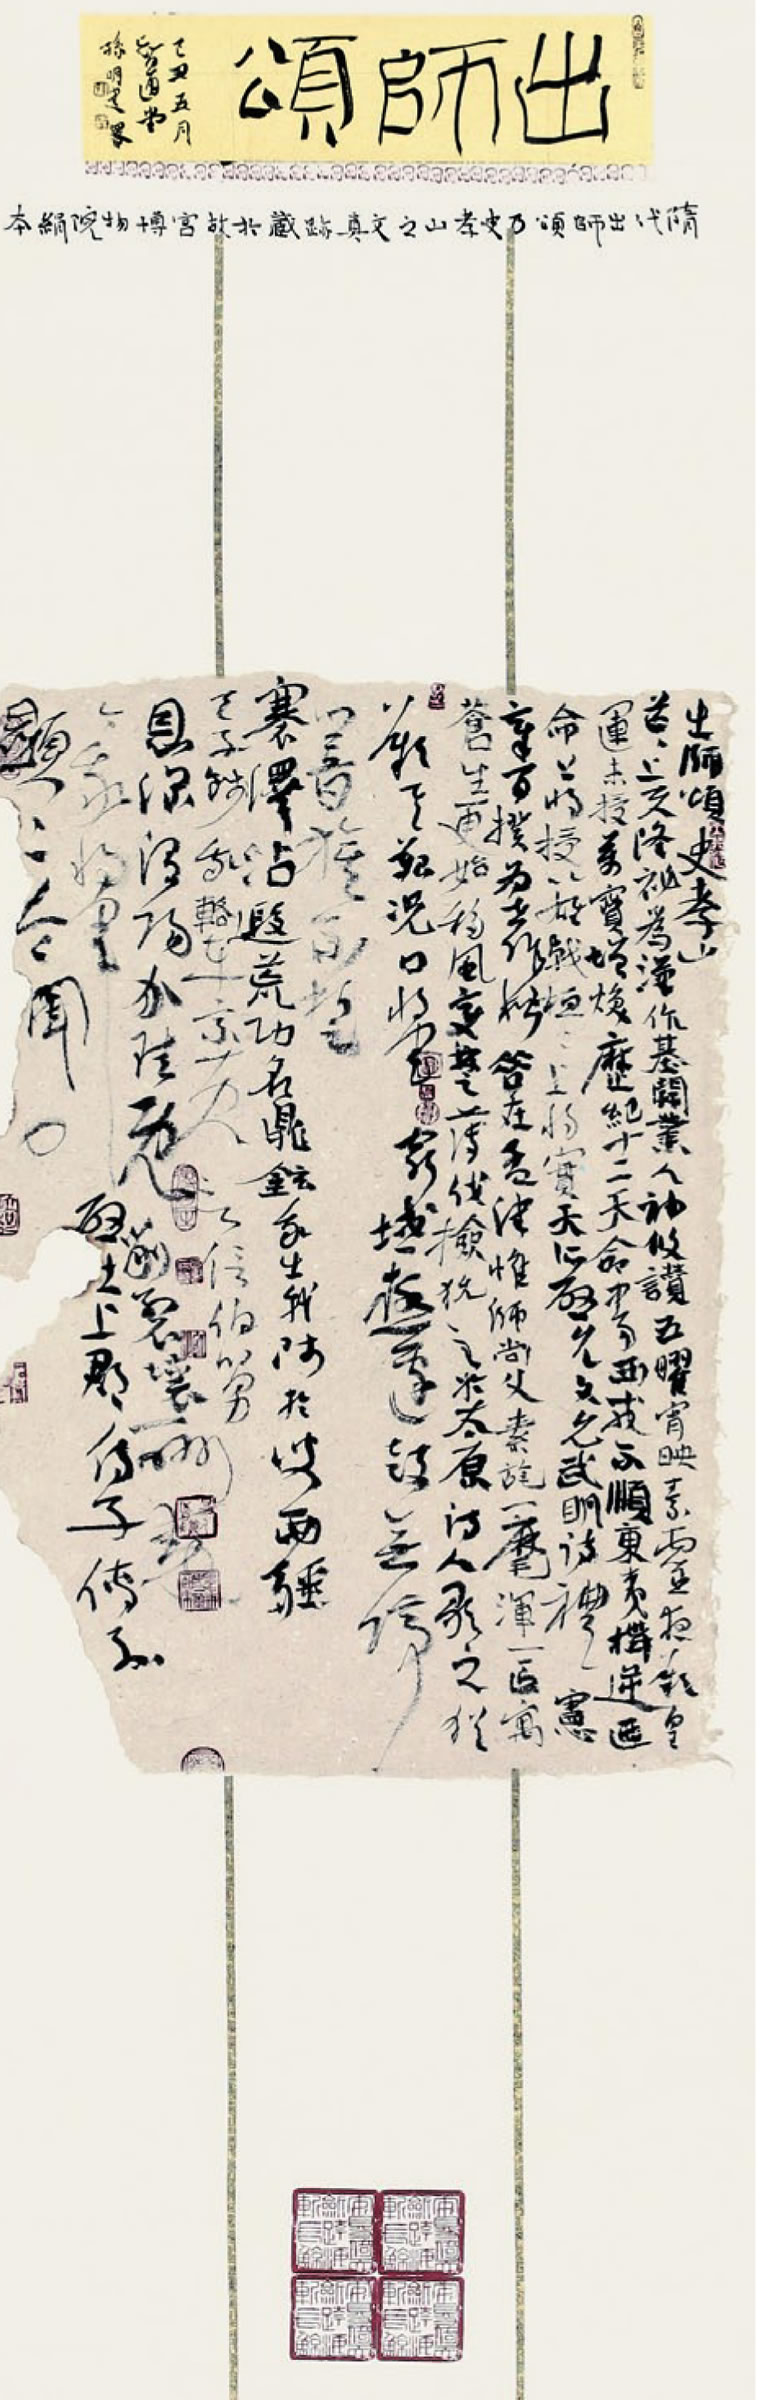 出師頌
己丑五月
隋代出師頌乃史孝山之文真跡藏於故宮博物院絹本
出師頌 史孝山
茫〻上天降祚為漢作基開業人神攸讚五曜宵映素靈夜歎皇
運未授萬寶增煥歷紀十二天命中易西戎不順東夷構逆西
命上將授以雄戟桓〻上將實天所啟允文允武明詩禮憲
章百揆為世作楷昔在孟津惟師尚父素旄一麾渾一區寓
蒼生更始移風變楚薄伐獫狁至於太原詩人歌之猶
歎其艱況口將軍窮域極邊鼓無停
響旗不蹔
褰澤沾遐荒功名鼎鉉我出我師於彼西疆
天子餞我輅車乘黃言念伯舅
恩深渭陽介珪既削裂壤酬勳
今我將軍啟土上郡傳子傳孫
顯〻令聞